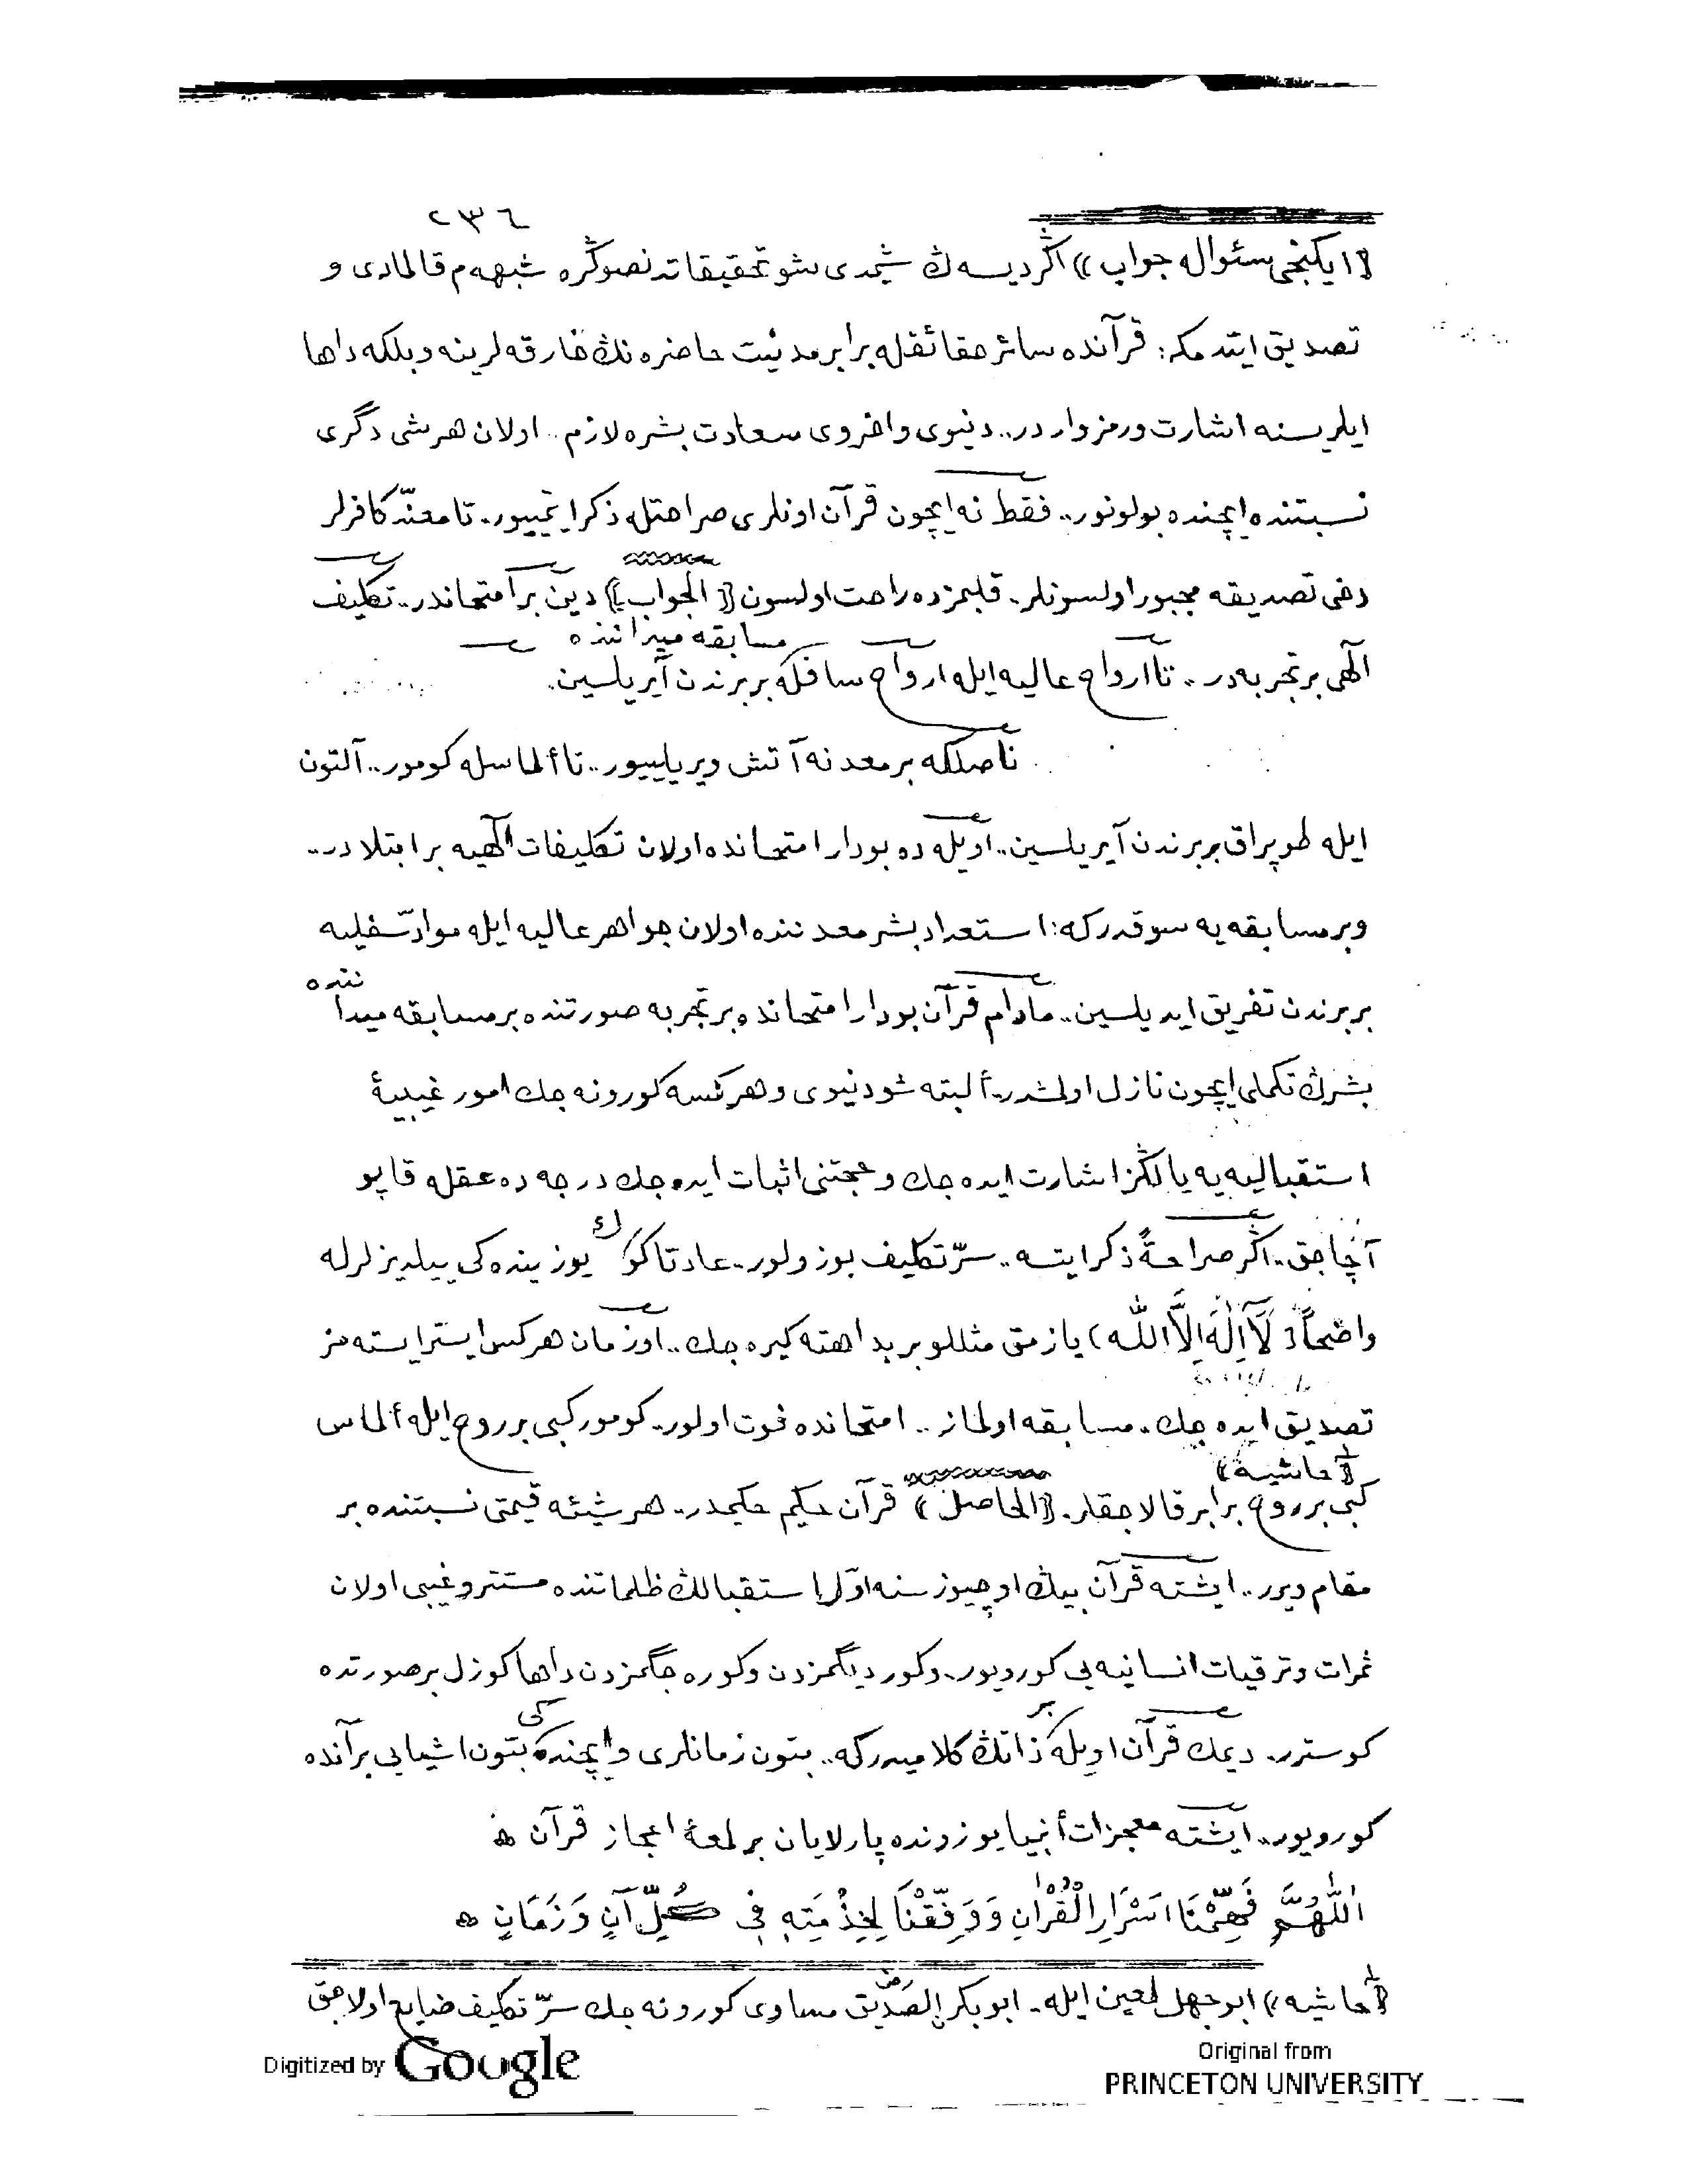 ٢٣٦
((ایكنجی سئوال جواب)) اگر دیسه‌ڭ شیمدی شو تحقیقاتدنصوڭره شبهه‌م قالمادی و
تصدیق ایتدمكه: قرآنده سائر حقائقله برابر مدنیت حاضره‌نڭ خارقه‌لرینه و بلكه داها
ایلریسنه اشارت و رمز وار در.. دنیوی و اخروی سعادت بشره لازم.. اولان هر شی دگری
نسبتنده ایچنده بولونور.. فقط نه ایچون قرآن اونلری صراحتله ذكر ایتمییور. تا معنّد كافرلر
دخی تصدیقه مجبور اولسونلر. قلبمزده راحت اولسون ((الجواب)) دین بر امتحاندر.. تكلیف
الٓهی بر تجربه‌در.. تا ارواح عالیه ایله ارواح سافله مسابقه میداننده بربرندن آیریلسین.
ناصلكه بر معدنه آتش ویریلییور.. تا ألماسله كومور.. آلتون
ایله طوپراق بربرندن آیریلسین.. اویله ده بو دار امتحانده اولان تكلیفات الٓهیه بر ابتلادر..
و بر مسابقه‌یه سوقدركه: استعداد بشر معدننده اولان جواهر عالیه ایله موادّ سفلیه
بربرندن تفریق ایدیلسین.. مادام قرآن بو دار امتحانده بر تجربه صورتنده بر مسابقه میداننده
بشرڭ تكملی ایچون نازل اولمشدر. ألبته شو دنیوی و هركسه كورونه‌جك امور غیبیۀ
استقبالیه‌یه یالڭز اشارت ایده‌جك و حجتنی اثبات ایده‌جك درجه‌ده عقله قاپو
آچاجق.. اگر صراحةً ذكر ایتسه.. سرّ تكلیف بوزولور. عادتا كوك یوزینده‌كی ییلدیزلرله
واضحاً ((لَٓا اِلٰهَ اِلَّا اللّٰه)) یازمق مثللو بر بداهته كیره‌جك.. او زمان هركس ایستر ایسته‌مز
تصدیق ایده‌جك. مسابقه اولماز.. امتحانده فوت اولور. كومور كبی بر روح ایله ألماس
كبی بر روح برابر قالاجقلر. ((حاشیه١)) ((الحاصل)) قرآن حكیم حكیمدر. هر شیئه قیمتی نسبتنده بر
مقام ویرر.. ایشته قرآن بیڭ اوچیوز سنه اوّل استقبالڭ ظلماتنده مستتر و غیبی اولان
ثمرات و ترقیات انسانیه‌یی كورویور. و كوردیگمزدن و كوره‌جگمزدن داها كوزل بر صورتده
كوسترر. دیمك قرآن اویله بر ذاتڭ كلامیدركه.. بتون زمانلری و ایچنده‌كی بتون اشیایی بر آنده
كورویور.. ایشته معجزات أنبیا یوزونده پارلایان بر لمعۀ اعجاز قرآن ه
اَللّٰهُمَّ فَهِّمْنَا اَسْرَارَ الْقُرْاٰنِ وَ وَفِّقْنَا لِخِذْمَتِهِ فِى كُلِّ آنٍ وَ زَمَانٍ ه
((حاشیه١)) ابو جهل لعین ایله. ابوبكر الصّدّیق رض مساوی كورونه‌جك سرّ تكلیف ضایع اولاجق
Digitized by Google
Original from
PRINCETON UNIVERSITY